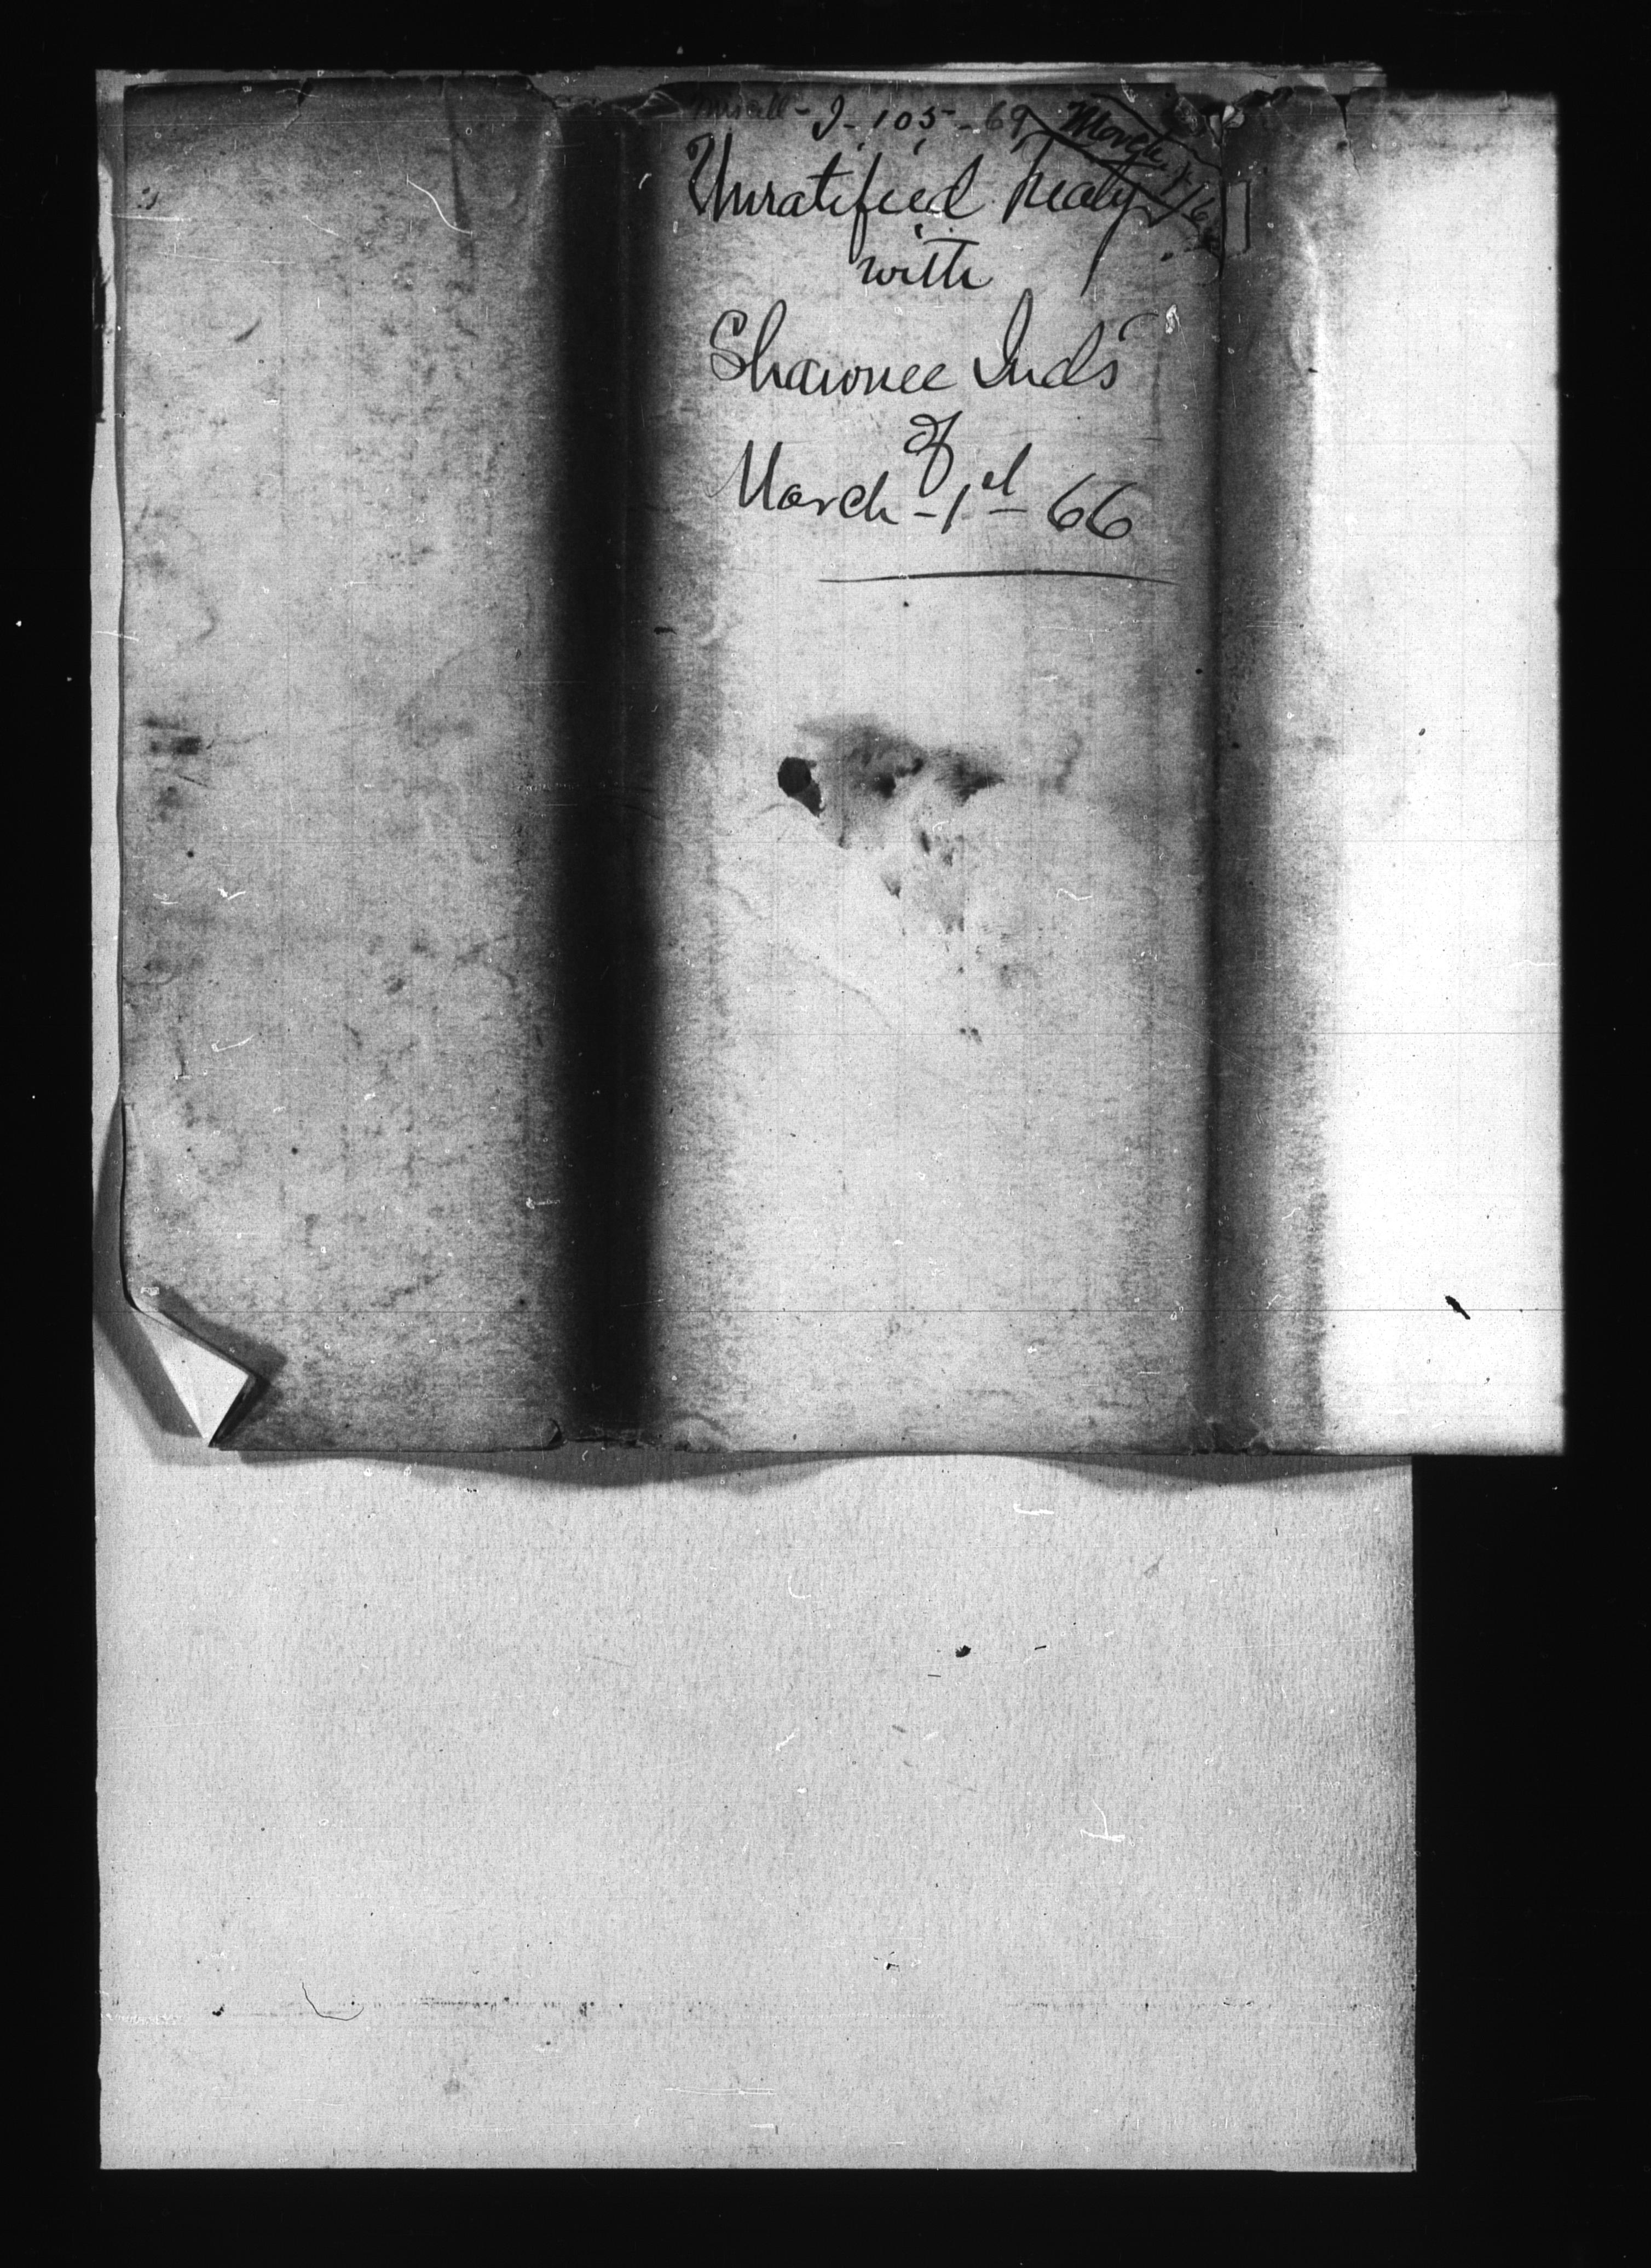 Miscll - I - 105 - 69
March 1/66
Unratified Treaty
with
Shawnee Inds
of
March - 1st - 66